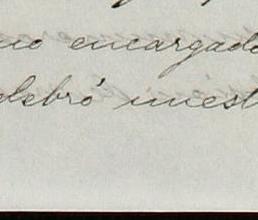 no encargado
lebró nuest